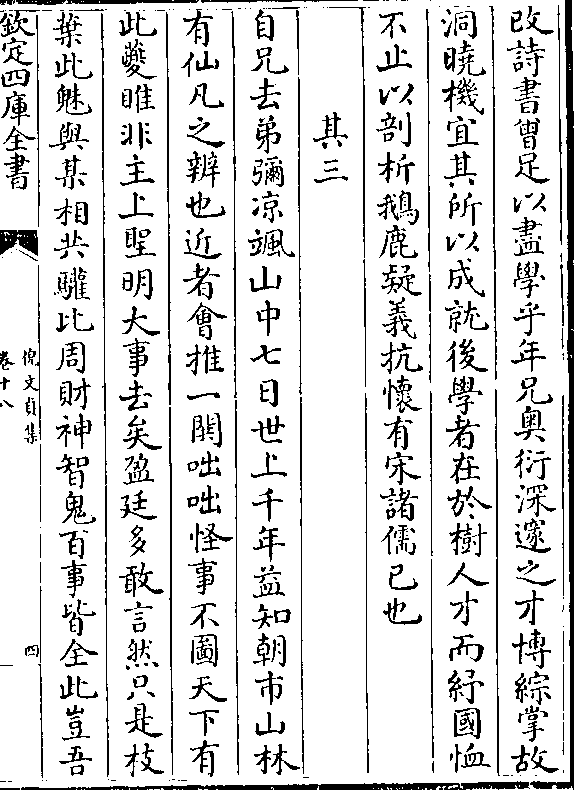 改詩書曾足以盡學乎年兄奧衍深邃之才博綜掌故
洞曉機宜其所以成就後學者在於樹人才而紓國恤
不止以剖析鵝鹿疑義抗懷有宋諸儒已也
其三
自兄去弟彌凉颯山中七日世上千年益知朝市山林
有仙凡之辨也近者會推一閧咄咄怪事不圖天下有
此夔睢非主上聖明大事去矣盈廷多敢言然只是枝
葉此魅與某相共驩比周財神智鬼百事皆全此豈吾
欽定四庫全書
倪文貞集
卷十八
四